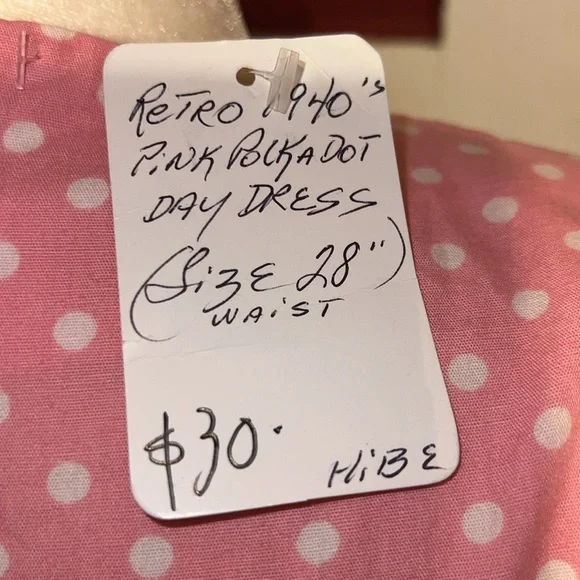 RETRO 1940's
PiNK POLKADOT
DAY DRESS
(SiZE 28")
WAiST
$30.
HiBE